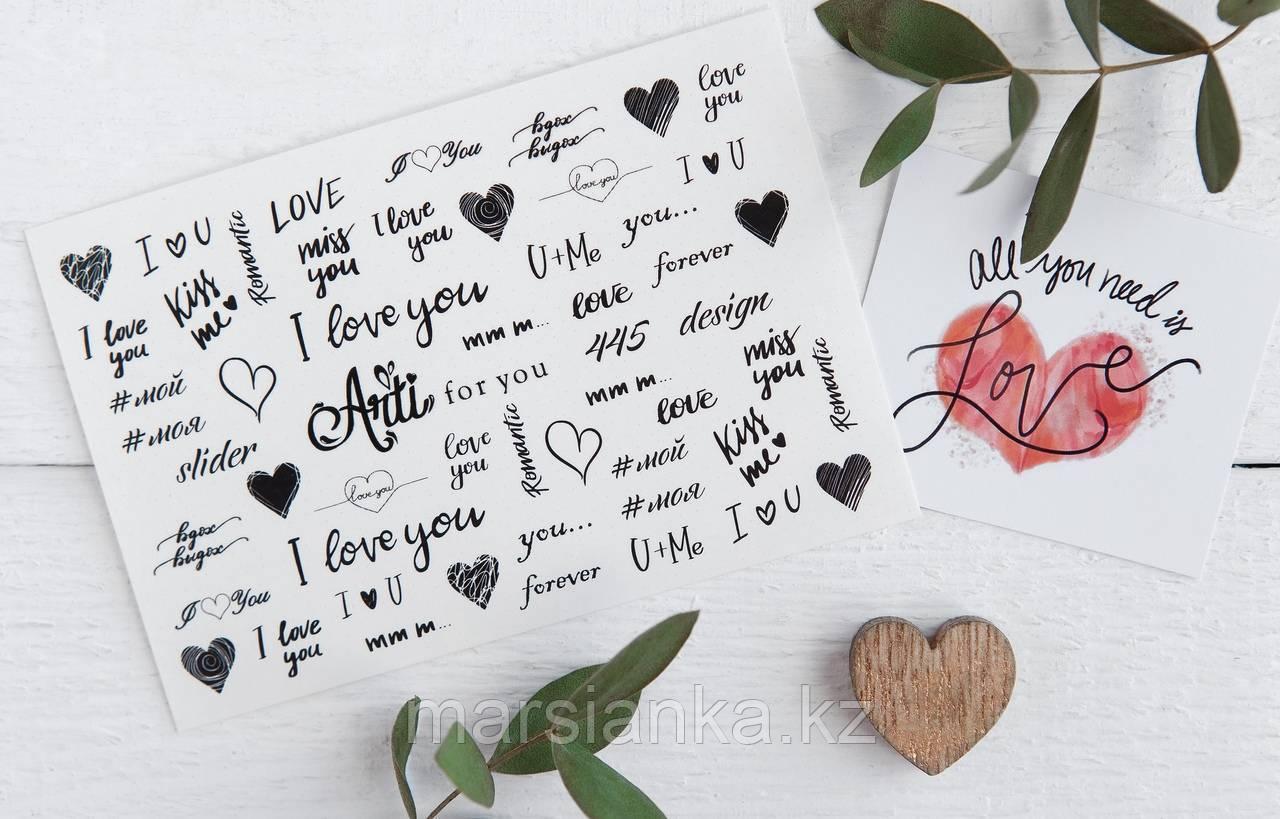 love
you
I You
вдох
видох
I U
love you
LOVE
I love
you
you...
I U
Romantic
miss
you
U+Me
forever
Kiss
me
I love you
love
mm m...
445
design
I love
you
miss
you
Romantic
#мой
Arti
for you
mm m...
#моя
love
slider
love
you
Romantic
#мой
Kiss
me
love you
#моя
I U
вдох
видох
I love you
you...
U+Me
I You
I U
forever
I love
you
mm m...
all you need is
Love
marsianka.kz